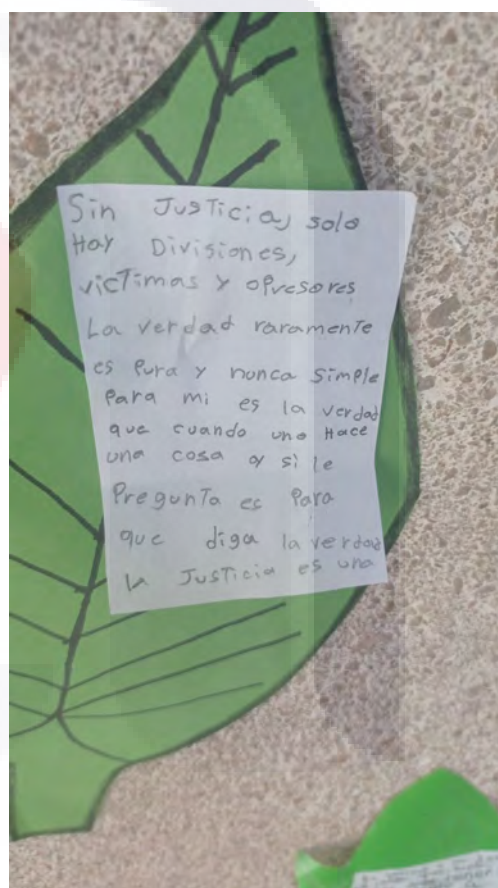 Sin Justicia, solo
Hay Divisiones,
victimas y opresores
La verdad raramente
es Pura y nunca simple
Para mi es la verdad
que cuando uno Hace
una cosa y si le
Pregunta es Para
que diga la verdad
la Justicia es una